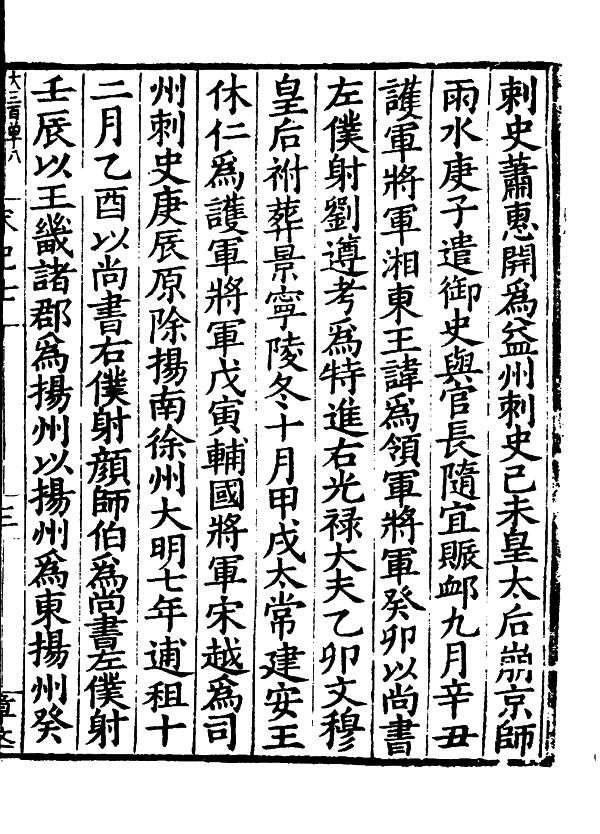 刺史蕭惠開爲益州刺史己未皇太后崩京師
雨水庚子遣御史與官長隨宜賑䘏九月辛丑
護軍將軍湘東王諱爲領軍將軍癸卯以尚書
左僕射劉遵考爲特進右光禄大夫乙卯文穆
皇后祔葬景寧陵冬十月甲戌太常建安王
休仁爲護軍將軍戊寅輔國將軍宋越爲司
州刺史庚辰原除揚南徐州大明七年逋租十
二月乙酉以尚書右僕射顔師伯爲尚書左僕射
壬辰以王畿諸郡爲揚州以揚州爲東揚州癸
大三百單八
宋紀七
三